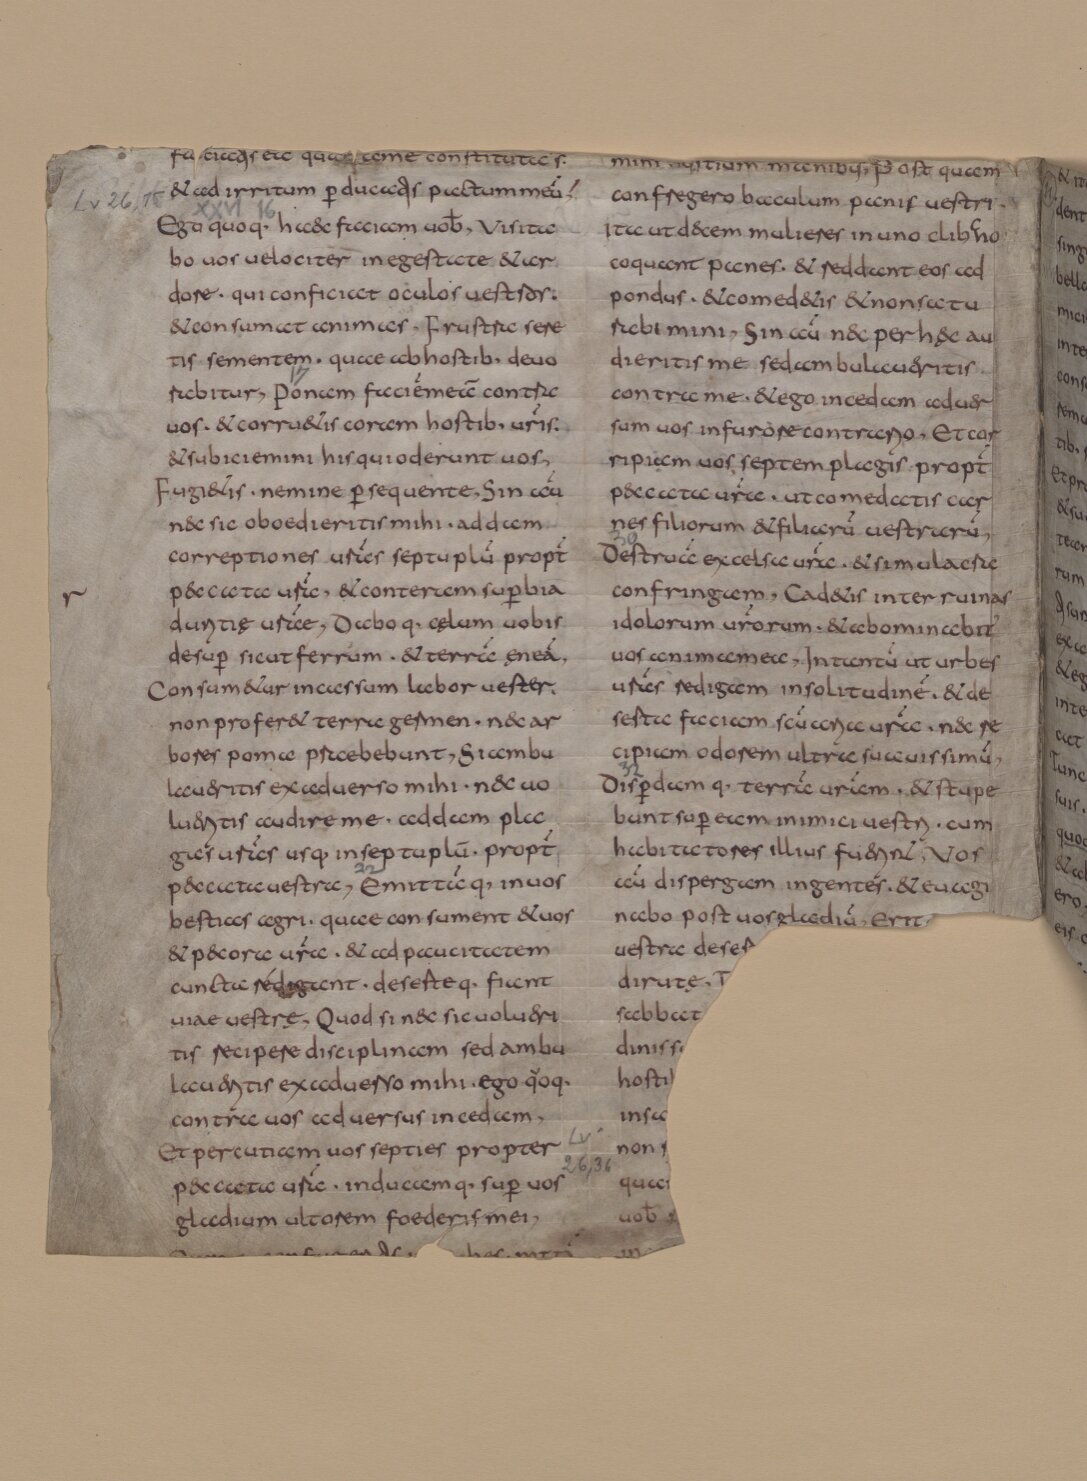 faciatis ea quae a me constituta s̅.
& ad irritum p̲ducatis pactum meū!
Lv 26, 15
XXVI 16
Ego quoq. haec faciam uob̅, Visita
bo uos uelociter in egestate & ar
dore. qui conficiat oculos uestros.
& consumat animas. Frustra sere
tis sementem. quae ab hostib. deuo
17
rabitur, Ponam faciē meā contra
uos. & corruetis coram hostib. ur̅is.
& subiciemini his qui oderunt uos,
Fugietis. nemine p̲sequente. Sin aū
nec sic oboedieritis mihi. addam
correptiones ur̅as septuplū propt̅
peccata ur̅a, & conteram sup̲bia
duritię ur̅ae, Dabo q. cęlum uobis
desup̲ sicut ferrum. & terrā ęneā,
Consumetur incassum labor uester.
non profer& terra germen. nec ar
bores poma praebebunt, Si ambu
laueritis ex aduerso mihi. nec uo
lueritis audire me. addam pla
gas ur̅as usq, in septuplū. propt̅
22
peccata uestra, Emittā q, in uos
bestias agri. quae consument & uos
& pecora ur̅a. & ad paucitatem
cuncta redigant. deserte q. fiant
uiae uestrę. Quod si nec sic uolueri
tis recipere disciplinam sed ambu
laueritis ex aduerso mihi. ego quoq.
contra uos aduersus incedam,
Et percutiam uos septies propter
peccata ur̅a. inducam q. sup̲ uos
gladium ultorem foederis mei,
r
Lv
26,36
mini hostium manibus, Postquam
confregero baculum panis uestri.
ita ut decem mulieres in uno clibano
coquant panes. & reddant eos ad
pondus. & comedetis & non satu
rabimini, Sin aū nec per haec au
dieritis me sed ambulaueritis
contra me. & ego incedam aduer
sum uos in furore contrario, Et cor
ripiam uos septem plagis propt̅
peccata ur̅a. ut comedatis car
nes filiorum & filiarū uestrarū,
30
Destruā excelsa ur̅a. & simulacra
confringam, Cadetis inter ruinas
idolorum ur̅orum. & abominabit̅
uos anima mea, In tantū ut urbes
ur̅as redigam in solitudinē. & de
serta faciam scūaria ur̅a. nec re
cipiam odorem ultra suauissimū,
32
Disp̲dam q. terrā ur̅am. & stupe
bunt sup̲ eam inimici uestri. cum
habitatores illius fuerint, Vos
aū dispergam in gentes. & euagi
nabo post uos gladiū, Erit
uestra deser
dirutę.
sabbat
dinis s
hosti
insa
non
quae
uob̅
& it
dent
sing
bell
mici
inte
cons
tib.
Et pr
rum
ex
& eg
inte
Tunc
suis.
quo
ero,
eis